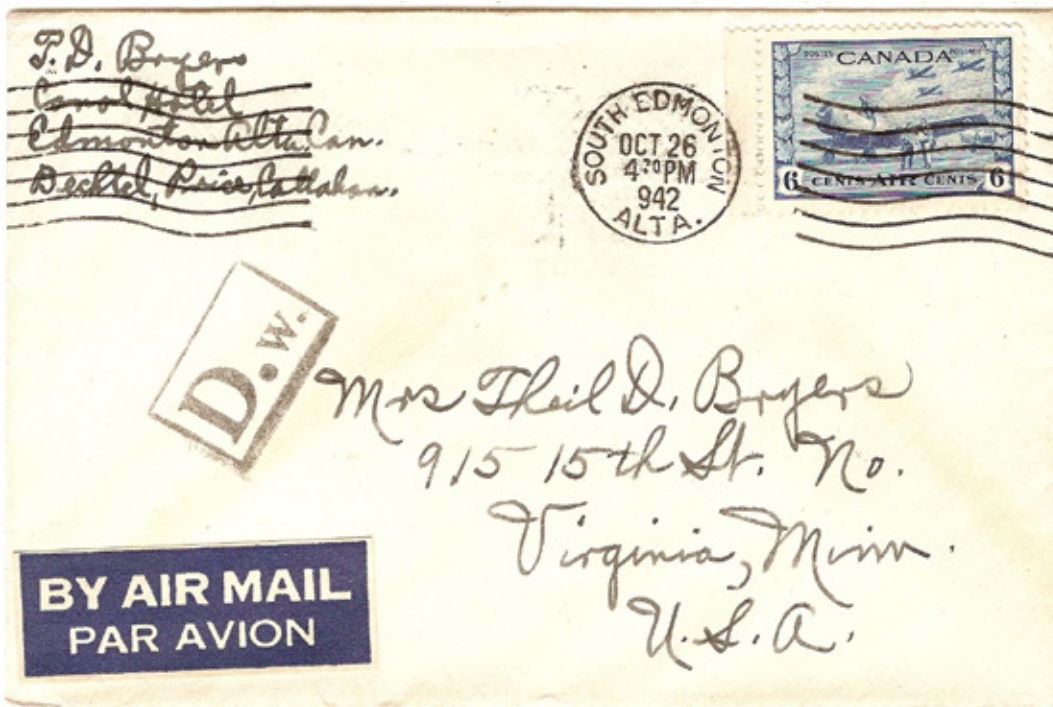 T. D. Bryers
Canol Hotel
Edmonton Alta. Can.
Bechtel, Price, Callahan.
SOUTH EDMONTON
OCT 26
4 30 PM
942
ALTA.
POSTES POSTAGE
CANADA
6 CENTS AIR CENTS 6
D.w.
Mrs Theil D. Bryers
915 15th St. No.
Virginia, Minn.
U.S.A.
BY AIR MAIL
PAR AVION